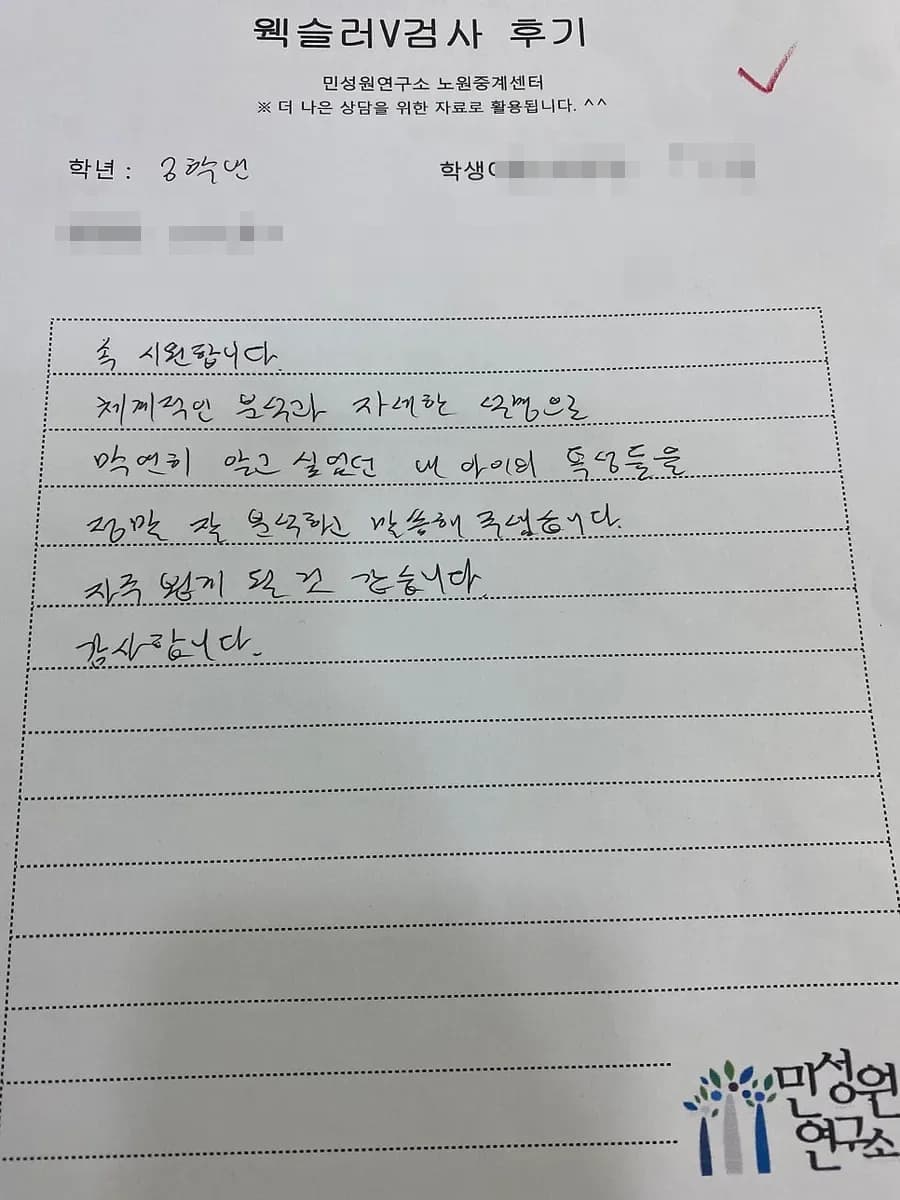 웩슬러V검사 후기
민성원연구소 노원중계센터
※ 더 나은 상담을 위한 자료로 활용됩니다. ^^
학년 : 3학년
학생
속 시원합니다.
체계적인 분석과 자세한 설명으로
막연히 알고 싶었던 내 아이의 특성들을
정말 잘 분석하고 말씀해 주셨습니다.
자주 뵙게 될 것 같습니다.
감사합니다.
민성원
연구소